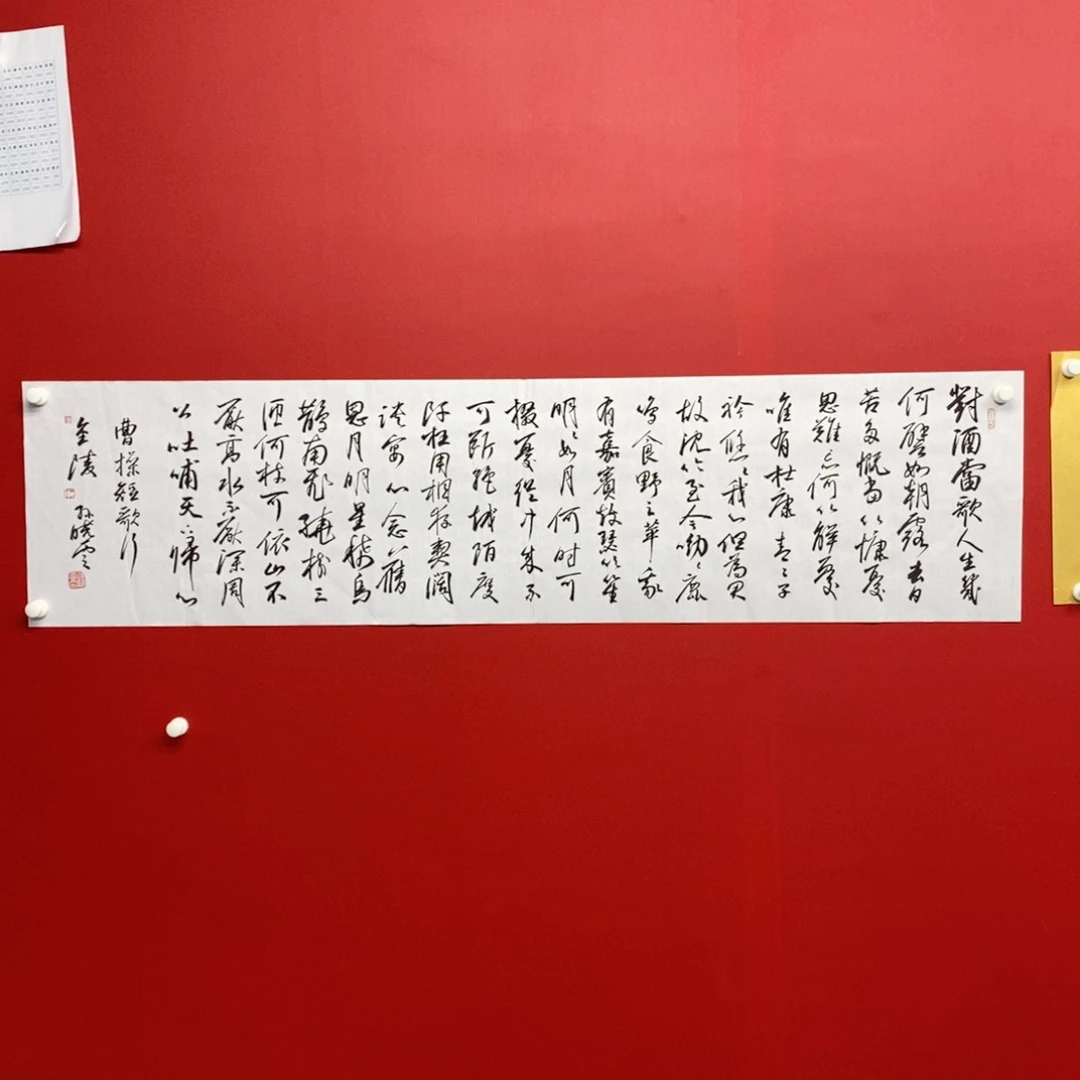 對酒當歌人生幾
何譬如朝露去日
苦多慨當以慷憂
思難忘何以解憂
唯有杜康青々子
衿悠々我心但為君
故沈吟至今呦々鹿
鳴食野之苹我
有嘉賓鼓瑟吹笙
明々如月何时可
掇憂從中來不
可断絕越陌度
阡枉用相存契闊
談宴心念舊
恩月明星稀烏
鵲南飛繞樹三
匝何枝可依山不
厭高水不厭深周
公吐哺天下歸心
曹操短歌行
金陵孫曉雲